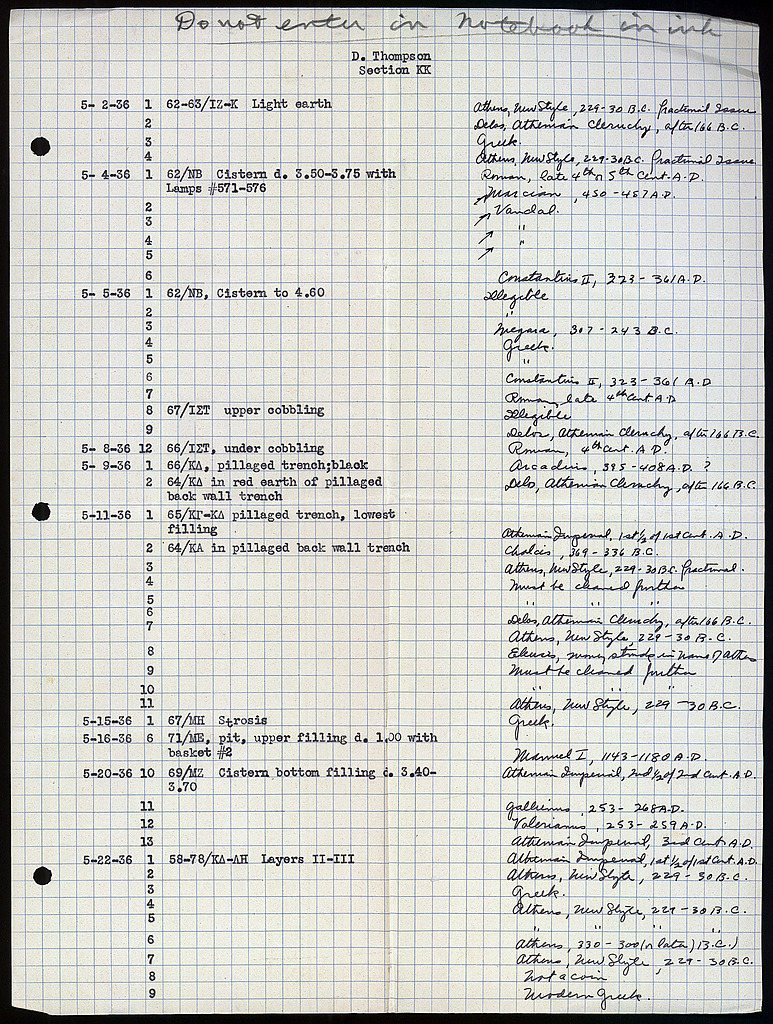 Do not enter in notebook in ink
D. Thompson
Section KK
5- 2-36 1 62-63/IZ-K Light earth Athens, New Style, 229-30 B.C. fractional Issue
2 Delos, Athenian Cleruchy, after 166 B.C.
3 Greek.
4 Athens, New Style, 229-30 B.C. fractional Issue
5- 4-36 1 62/NB Cistern d. 3.50-3.75 with Roman, late 4th or 5th Cent. A.D.
Lamps #571-576
Marcian, 450-457 A.D.
2 Vandal.
3 "
4 "
5
6 Constantius II, 323-361 A.D.
5- 5-36 1 62/NB, Cistern to 4.60 Illegible
2 "
3 Megara, 307-243 B.C.
4 Greek.
5 "
6 Constantius II, 323-361 A.D
7 Roman, late 4th Cent A.D
8 67/ΙΣΤ upper cobbling Illegible
9 Delos, Athenian Cleruchy, after 166 B.C.
5- 8-36 12 66/ΙΣΤ, under cobbling Roman, 4th Cent. A.D.
5- 9-36 1 66/ΚΔ, pillaged trench;black Arcadius, 395-408 A.D. ?
2 64/ΚΔ in red earth of pillaged Delos, Athenian Cleruchy, after 166 B.C.
back wall trench
5-11-36 1 65/ΚΓ-ΚΔ pillaged trench, lowest
filling Athenian Imperial, 1st ½ of 1st Cent. A.D.
2 64/ΚΑ in pillaged back wall trench Chalcis, 369-336 B.C.
3 Athens, New Style, 229-30 B.C. fractional.
4 Must be cleaned further
5 " " "
6 Delos, Athenian Cleruchy, after 166 B.C.
7 Athens, New Style, 229-30 B.C.
8 Eleusis, money struck in name of Athens
9 Must be cleaned further
10 " " "
11 Athens, New Style, 229-30 B.C.
5-15-36 1 67/ΜΗ Strosis Greek.
5-16-36 6 71/ΜΕ, pit, upper filling d. 1.00 with
basket #2 Manuel I, 1143-1180 A.D.
5-20-36 10 69/ΜΖ Cistern bottom filling d. 3.40- Athenian Imperial, 2nd ½ of 2nd Cent. A.D.
3.70
11 Gallienus, 253-268 A.D.
12 Valerianus, 253-259 A.D.
13 Athenian Imperial, 3rd Cent A.D.
5-22-36 1 58-78/ΚΔ-ΛΗ Layers II-III Athenian Imperial, 1st ½ of 1st Cent. A.D.
2 Athens, New Style, 229-30 B.C.
3 Greek.
4 Athens, New Style, 229-30 B.C.
5 " " "
6 Athens, 330-300 (or later) B.C.)
7 Athens, New Style, 229-30 B.C.
8 Not a coin
9 Modern Greek.